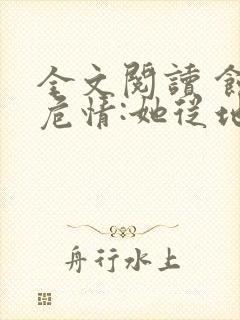 全文閱讀 
危情:她從地
舟行水上